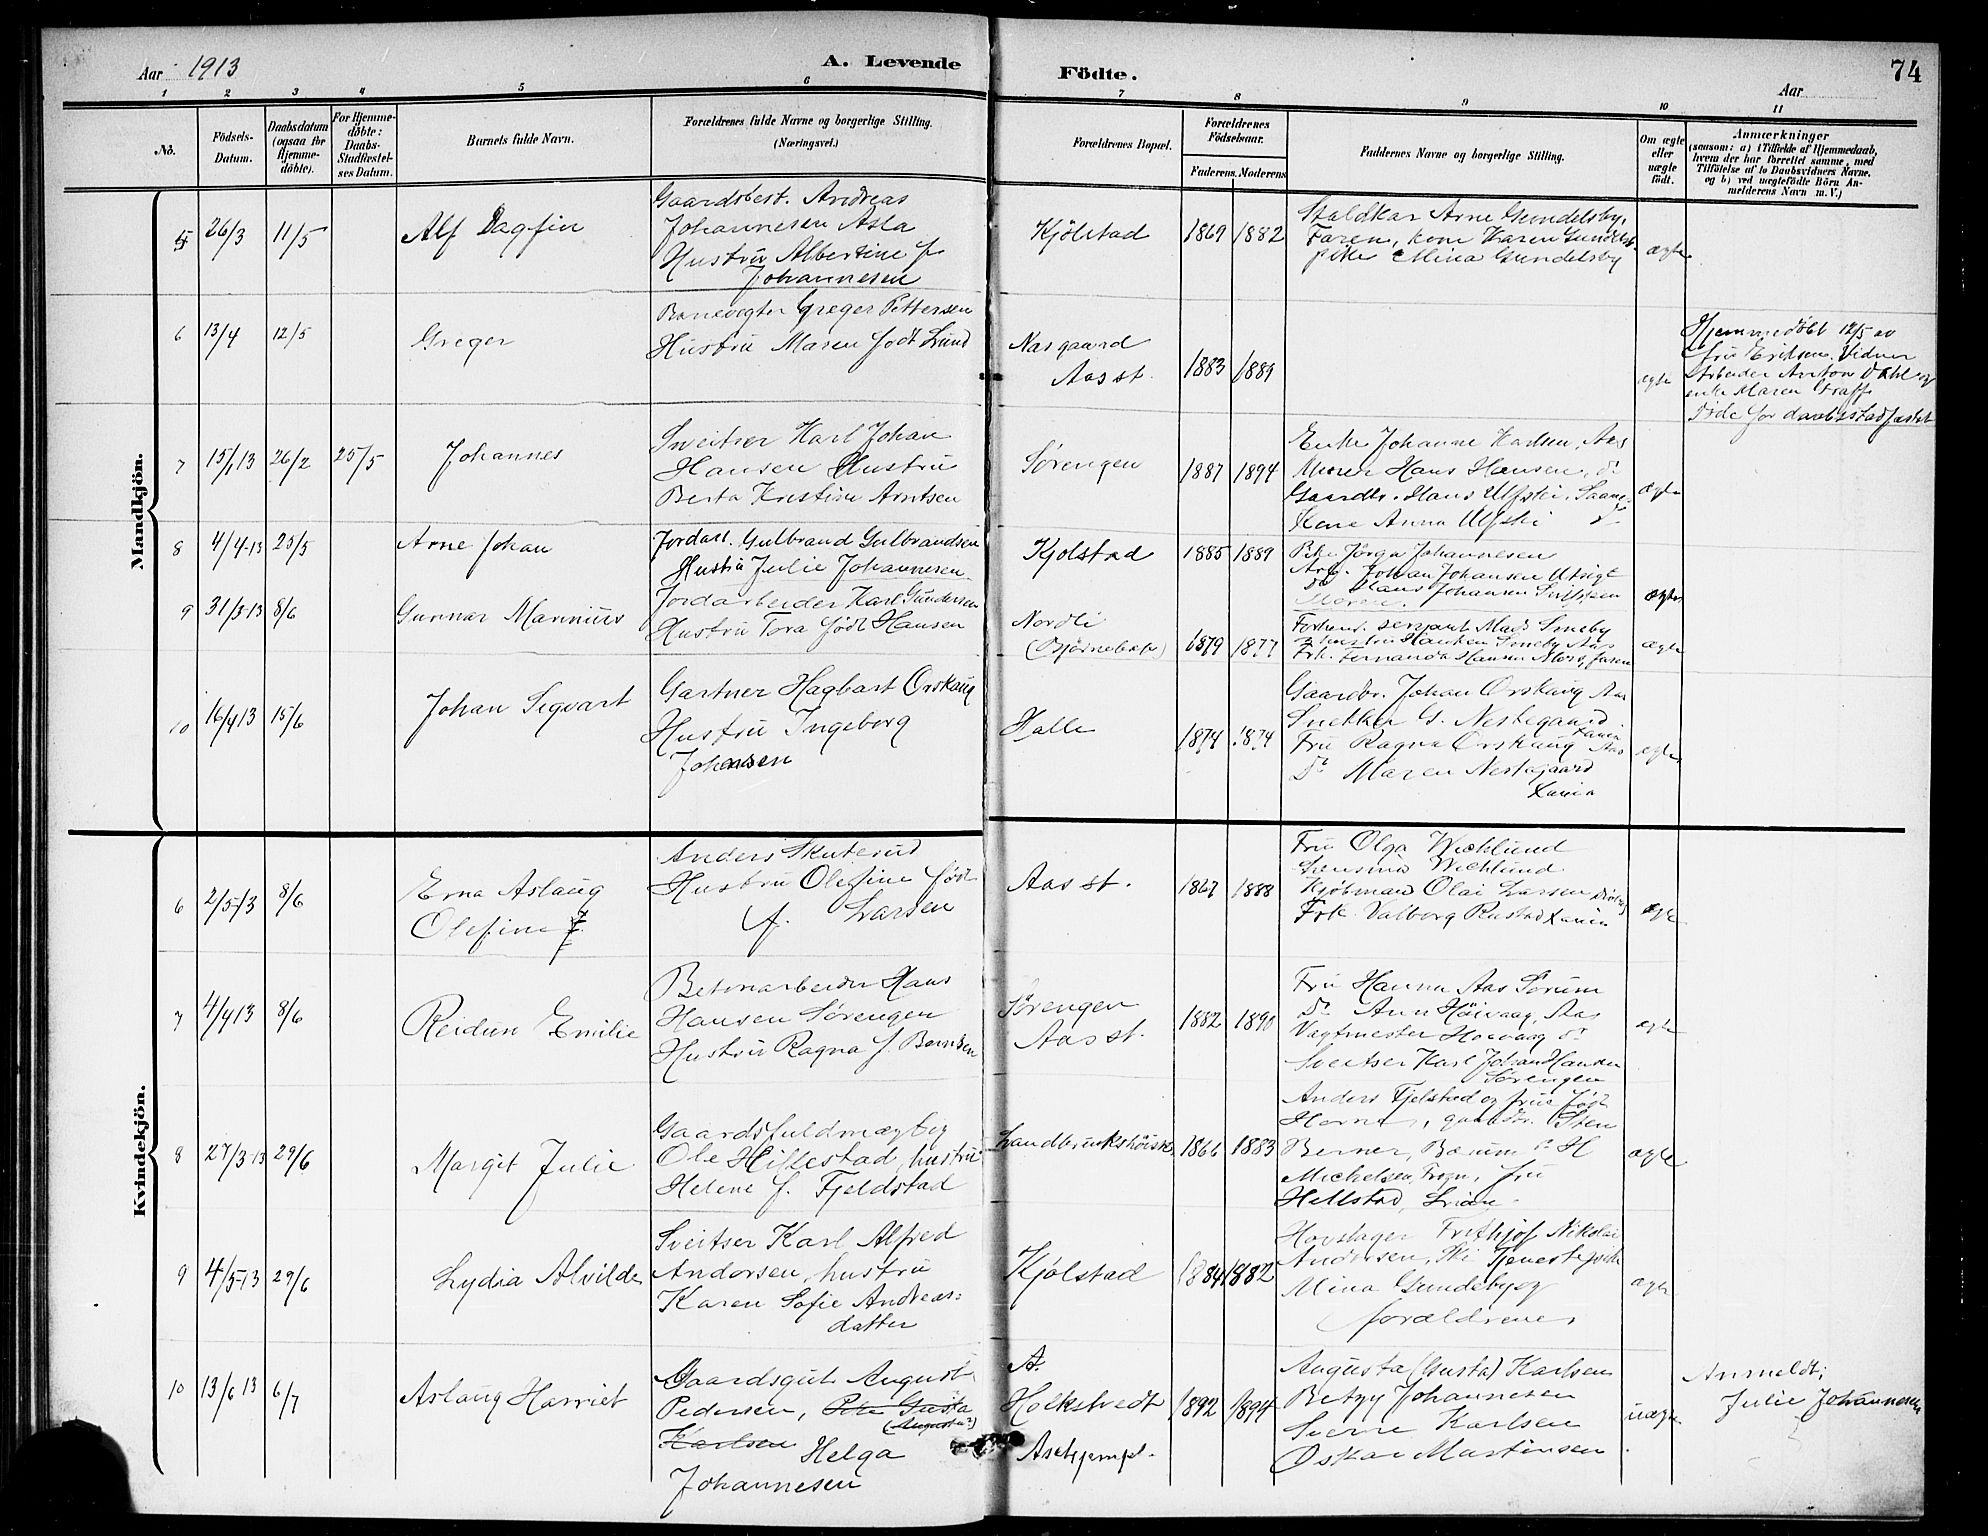 Aar 1913
A. Levende Födte.
74
Aar
1 2 3 4 5 6 7 8 9 10 11
No.
Födsels-Datum.
Daabsdatum (ogsaa for Hjemme-döbte).
For Hjemme-döbte: Daabs-Stadfæstel-ses Datum.
Barnets fulde Navn.
Forældrenes fulde Navne og borgerlige Stilling.
(Næringsvei.)
Forældrenes Bopæl.
Forældrenes Födselsaar.
Faderens. Moderens.
Faddernes Navne og borgerlige Stilling.
Om ægte eller uægte født.
Anmærkninger
(saasom: a) i Tilfælde af Hjemmedaab,
hvem der har forrettet samme, med
Tilföielse af to Daabsvidners Navne.
og b) ved uægtefödte Börn An-
melderens Navn m. V.)
Mandkjön.
5 26/3 11/5
Alf Dagfin
Gaardsbest. Andreas
Johannesen Asla
Hustru Albertine f.
Johannesen
Kjölstad
1869 1882
Staldkar Arne Gundelsby,
Faren, kone Karen
pike Mina Gundelsby
ægte
6 13/4 12/5
Greger
Banevogter Greger Pettersen
Hustru Maren født Lund
Norgaard
Aas st.
1883 1889
ægte
Hjemmedöbt 12/5 av
fru Eriksen. Vidner
Arbeider Anton Dahl og
enke Maren
Döde for daabsstadfæstet
7 15/1 13 26/2 25/5
Johannes
Sveitser Karl Johan
Hansen Hustru
Berta Kristine Arntsen
Sörengen
1887 1894
Enke Johanne Karlsen, Aas
Murer Hans Hansen, do
Gaardbr. Hans Ulfski, Saane
Kone Anna Ulfski do
ægte
8 4/4-13 25/5
Arne Johan
Jordarb. Gulbrand Gulbrandsen
Hustru Julie Johannesen
Kjolstad
1885 1889
Pike Jörga Johannesen
Arb. Johan Johansen Utsigt
do Hans Johansen
Moren.
ægte
9 31/3-13 8/6
Gunnar Marinius
Jordarbeider Karl Gundersen
Hustru Tora født Hansen
Nordli
(Bjørnebek)
1879 1877
sersjant Mads Smeby
Hustru Smeby Aas
Frk. Fernanda Hansen Moss, faren
ægte
10 16/4 13 15/6
Johan Sigvart
Gartner Hagbart Orskaug
Hustru Ingeborg
Johansen
Halle
1874 1874
Gaardbr. Johan Orskaug Aas
Snekker G. Nestegaard
Xania
Fru Ragna Orskaug Aas
do Maren Nestegaard
Xania
ægte
Kvindekjön.
6 2/5-13 8/6
Erna Aslaug
Olefine
Anders Skuterud
Hustru Olefine født
f. Larsen
Aas st.
1867 1888
Fru Olga Wicklund
Wicklund
Kjöbmand Olai Larsen Dröbak
Frk. Valborg Rustad Xania
ægte
7 4/4 13 8/6
Reidun Emilie
Betonarbeider Hans
Hansen Sörengen
Hustru Ragna f. Berntsen
Sörengen
Aas st.
1882 1890
Fru Hanna Aas Sörum
do Ann Höivaag, Aas
Vagtmester Höivaag do
Sveitser Karl Johan Hansen
Sörengen
ægte
8 27/3-13 29/6
Margit Julie
Gaardsfuldmægtig
Ole Hillestad, hustru
Helene f. Fjeldstad
Landbrukshöisk.
1866 1883
Anders Fjelstad og frue født
Horne, gaardbr. Sten
Berner, Bærum, do H
Michelsen, Frogn, fru
Hellstad,
ægte
9 4/5-13 29/6
Lydia Alvilde
Sveitser Karl Alfred
Andersen, hustru
Karen Sofie Andreas-
datter
Kjølstad
1884 1882
Hovslager Frithjof Nikolai
Andersen, Ski Tjenestepike
Mina Gundersby og
forældrene,
ægte
10 13/6 13 6/7
Aslaug Harriet
Gaardsgut August
Pedersen, Pike Gusta
(Augusta?)
Karlsen Helga
Johannesen
A.
Holkstvedt
1892 1894
Augusta (Gusta) Karlsen
Betzy Johannesen
Sverre Karlsen
Oskar Martinsen
uægte
Anmeldt:
Julie Johannesen